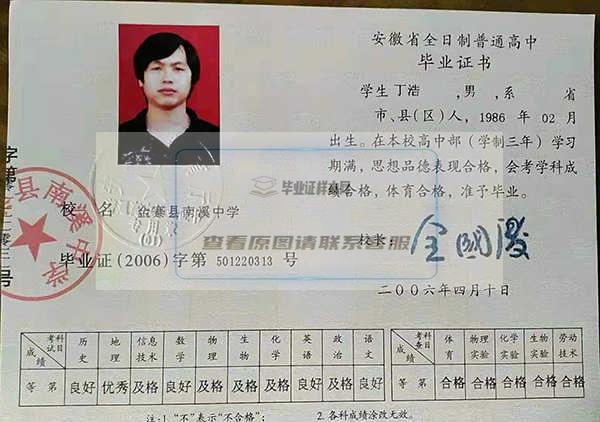 安徽省全日制普通高中
毕业证书
学生丁浩 ,男 ,系 省
市、县(区)人，1986 年 02 月
出生。在本校高中部（学制三年）学习
期满，思想品德表现合格，会考学科成
绩合格，体育合格，准予毕业。
校 名 金寨县南溪中学
校长:
毕业证(2006)字第 501220313 号
二〇〇六年四月十日
县南溪中学
字第
号
毕业证样本网
查看原图请联系客服
考试科目 成绩 历史 地理 信息技术 数学 物理 生物 化学 英语 政治 语文
等 第 良好 优秀 及格 良好 及格 及格 及格 良好 良好 良好
考查科目 成绩 体育 物理实验 化学实验 生物实验 劳动技术
等 第 合格 合格 合格 合格 合格
注:1."不"表示"不合格"； 2.各科成绩涂改无效。